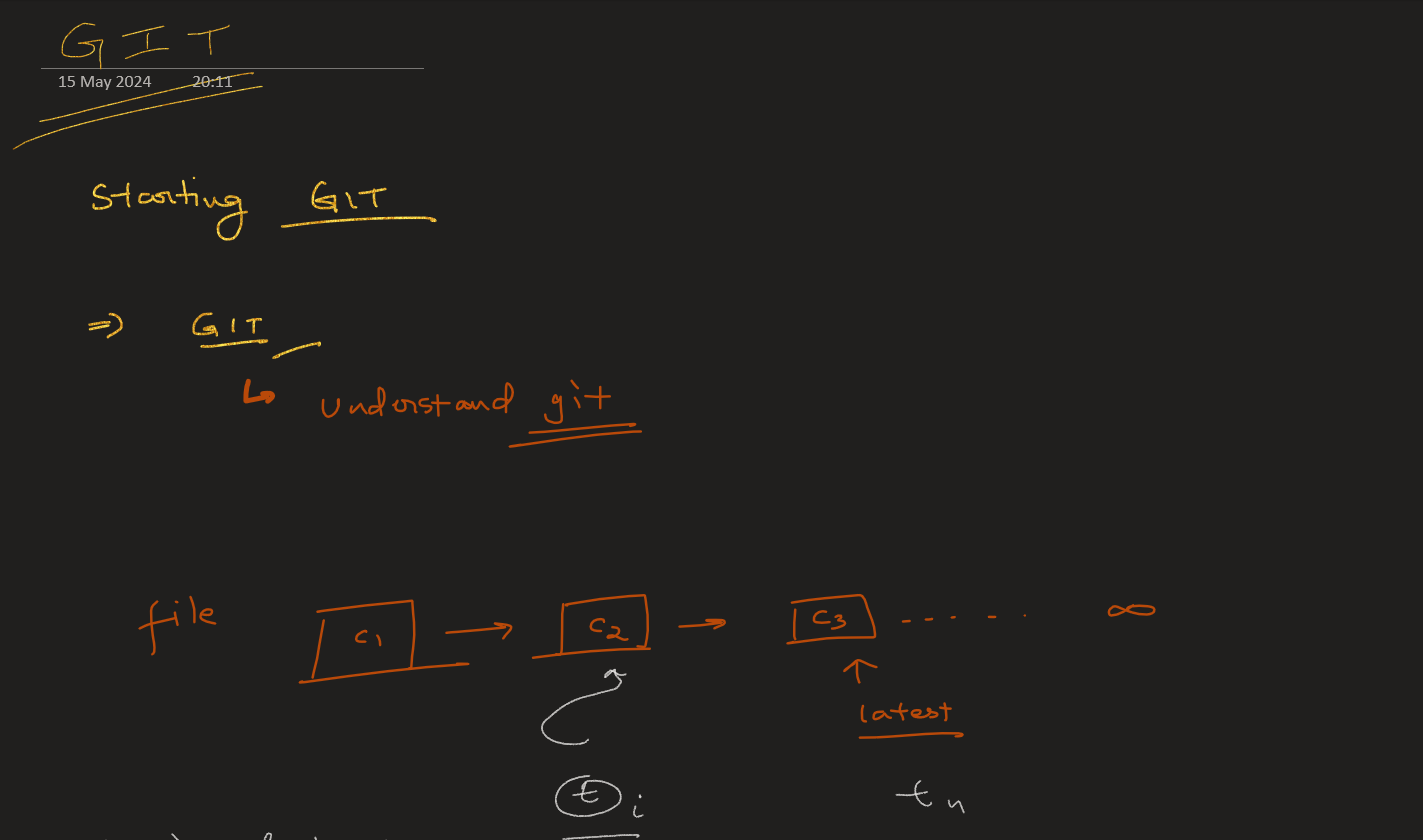 GIT
15 May 2024 20:11
Starting GIT
⇒ GIT
↳ understand git
file C1 → C2 → C3 ...... ∞
↑
latest
ti tn